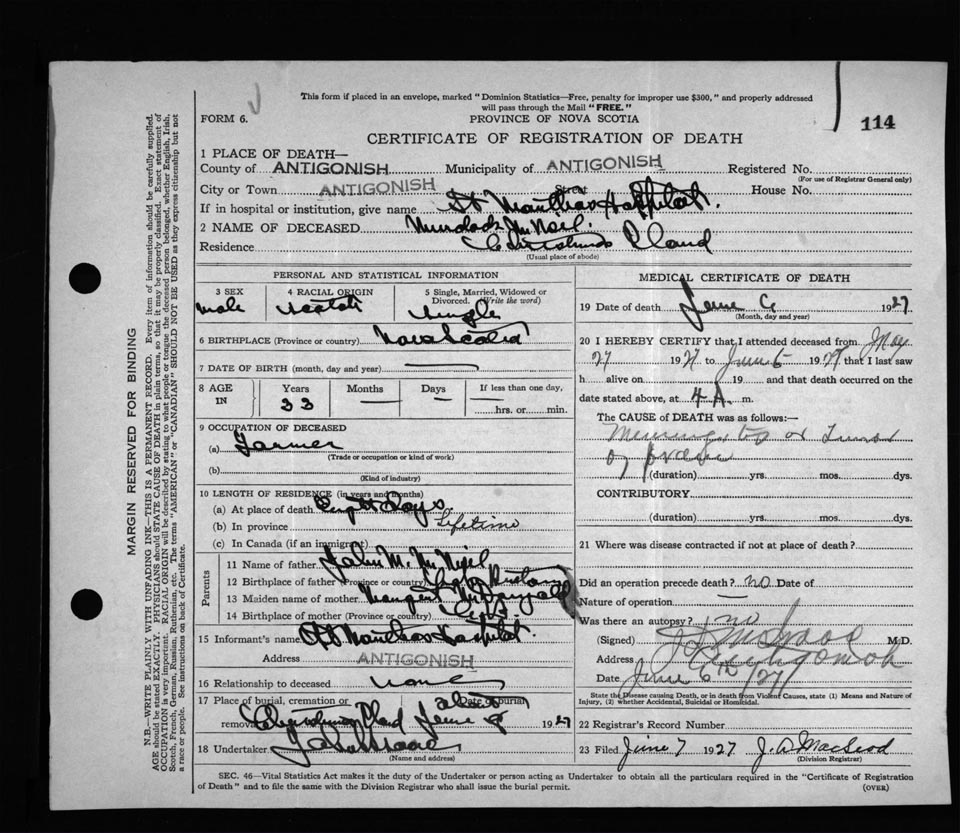 This form if placed in an envelope, marked "Dominion Statistics—Free, penalty for improper use $300," and properly addressed
will pass through the Mail "FREE."
FORM 6.
PROVINCE OF NOVA SCOTIA
114
CERTIFICATE OF REGISTRATION OF DEATH
1 PLACE OF DEATH—
County of ANTIGONISH Municipality of ANTIGONISH Registered No.
(For use of Registrar General only)
City or Town ANTIGONISH Street House No.
If in hospital or institution, give name St Marthas Hospital.
2 NAME OF DECEASED Murdock McNeil.
Residence
(Usual place of abode)
PERSONAL AND STATISTICAL INFORMATION
3 SEX
male
4 RACIAL ORIGIN
Scotch
5 Single, Married, Widowed or Divorced. (Write the word)
Single
6 BIRTHPLACE (Province or country) Nova Scotia
7 DATE OF BIRTH (month, day and year) —
8 AGE IN
Years
33
Months
—
Days
—
If less than one day,
hrs. or min.
9 OCCUPATION OF DECEASED
(a) Farmer
(Trade or occupation or kind of work)
(b)
(Kind of industry)
10 LENGTH OF RESIDENCE (in years and months)
(a) At place of death Eight days.
(b) In province Lifetime
(c) In Canada (if an immigrant)
Parents
11 Name of father John M. McNeil
12 Birthplace of father (Province or country)
13 Maiden name of mother Margaret McDougall
14 Birthplace of mother (Province or country)
15 Informant's name St Marthas Hospital.
Address ANTIGONISH
16 Relationship to deceased none
17 Place of burial, cremation or removal Date of burial
June 8 1927
18 Undertaker
(Name and address)
MEDICAL CERTIFICATE OF DEATH
19 Date of death June 6 1927
(Month, day and year)
20 I HEREBY CERTIFY that I attended deceased from May
27 1927 to June 6 1927 that I last saw
h alive on 19 and that death occurred on
date stated above, at 4 A. m.
The CAUSE of DEATH was as follows:—
Meningitis or Tumor
of brain
(duration) yrs. mos. dys.
CONTRIBUTORY
(duration) yrs. mos. dys.
21 Where was disease contracted if not at place of death?
Did an operation precede death? no Date of
Nature of operation —
Was there an autopsy? no
(Signed) M.D.
Address Antigonish
Date June 6th/27
State the Disease causing Death, or in death from Violent Causes, state (1) Means and Nature of
Injury, (2) whether Accidental, Suicidal or Homicidal.
22 Registrar's Record Number
23 Filed June 7 1927 J. A. MacLeod
(Division Registrar)
SEC. 46—Vital Statistics Act makes it the duty of the Undertaker or person acting as Undertaker to obtain all the particulars required in the "Certificate of Registration
of Death" and to file the same with the Division Registrar who shall issue the burial permit.
(OVER)
MARGIN RESERVED FOR BINDING
N.B.—WRITE PLAINLY WITH UNFADING INK—THIS IS A PERMANENT RECORD. Every item of information should be carefully supplied.
AGE should be stated EXACTLY. PHYSICIANS should STATE CAUSE OF DEATH in plain terms, so that it may be properly classified. Exact statement of
OCCUPATION is very important. RACIAL ORIGIN will be described by stating to what people or tongue the deceased person belonged, whether English, Irish,
Scotch, French, German, Russian, Ruthenian, etc. The terms "AMERICAN" or "CANADIAN" SHOULD NOT BE USED as they express citizenship but not
a race or people. See instructions on back of Certificate.